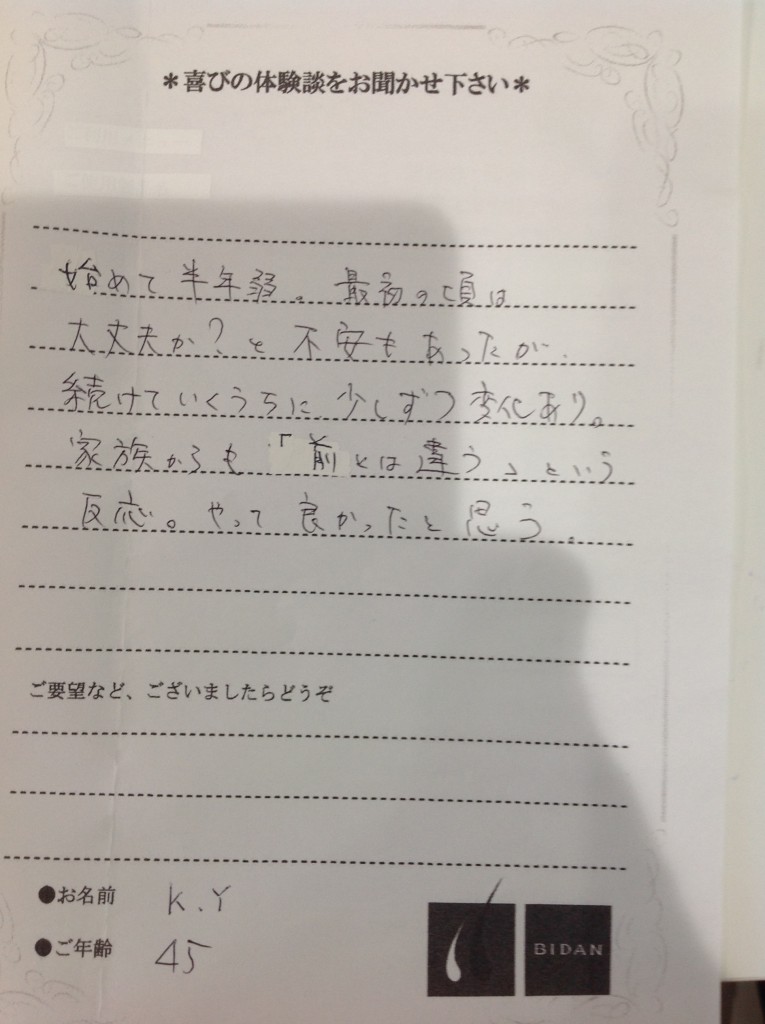 ＊喜びの体験談をお聞かせ下さい＊
始めて半年弱。最初の頃は
大丈夫か?と不安もあったが、
続けていくうちに少しずつ変化あり。
家族からも「前とは違う」という
反応。やって良かったと思う。
ご要望など、ございましたらどうぞ
●お名前 K.Y
●ご年齢 45
BIDAN